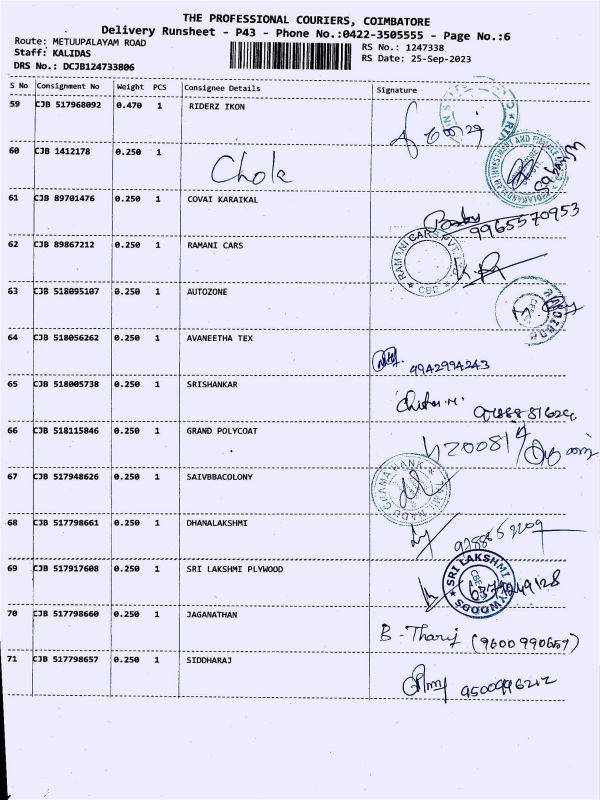 THE PROFESSIONAL COURIERS, COIMBATORE
Delivery Runsheet - P43 - Phone No.:0422-3505555 - Page No.:6
Route: METUUPALAYAM ROAD
Staff: KALIDAS
DRS No.: DCJB124733806
RS No.: 1247338
RS Date: 25-Sep-2023
S No Consignment No Weight PCS Consignee Details Signature
59 CJB 517968092 0.470 1 RIDERZ IKON
60 CJB 1412178 0.250 1 Chola
61 CJB 89701476 0.250 1 COVAI KARAIKAL 9965570953
62 CJB 89867212 0.250 1 RAMANI CARS
RAMANI CARS PVT
CBE
63 CJB 518095107 0.250 1 AUTOZONE
64 CJB 518056262 0.250 1 AVANEETHA TEX 4942994243
65 CJB 518005738 0.250 1 SRISHANKAR
66 CJB 518115846 0.250 1 GRAND POLYCOAT
67 CJB 517948626 0.250 1 SAIVBBACOLONY
GRAMA BANK
68 CJB 517798661 0.250 1 DHANALAKSHMI
69 CJB 517917608 0.250 1 SRI LAKSHMI PLYWOOD
SRI LAKSHMI PLYWOODS
CBE
70 CJB 517798660 0.250 1 JAGANATHAN B - Tharij (9600990657)
71 CJB 517798657 0.250 1 SIDDHARAJ